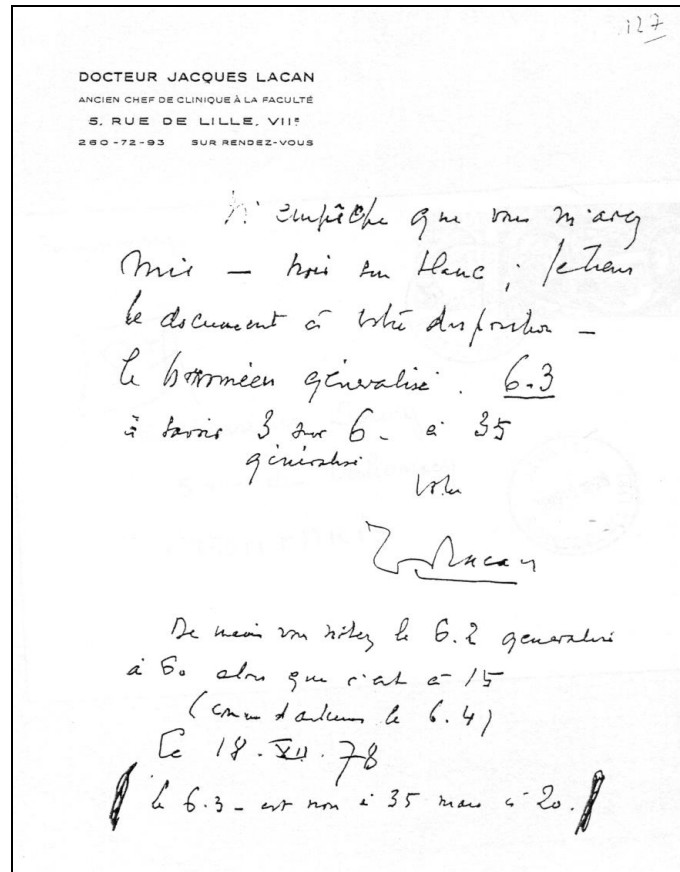 127
DOCTEUR JACQUES LACAN
ANCIEN CHEF DE CLINIQUE À LA FACULTÉ
5, RUE DE LILLE, VIIᵉ
260-72-93 SUR RENDEZ-VOUS
N'empêche que vous m'avez
mis — noir sur blanc ; je tiens
le document à votre disposition —
le borroméen généralisé. 6.3
à savoir 3 sur 6 - à 35
généralisé
Votre
J. Lacan
De même vous notez le 6.2 généralisé
à 60 alors que c'est à 15
(comme d'ailleurs le 6.4)
Ce 18.XII.78
le 6.3 - est non à 35 mais à 20.